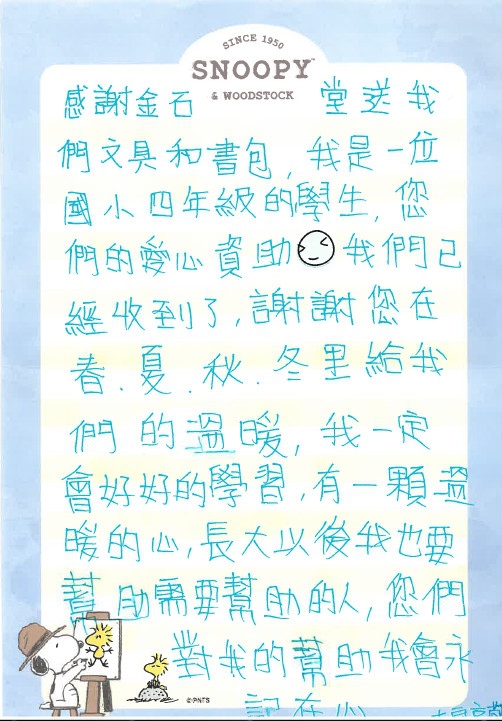 SINCE 1950
SNOOPY
& WOODSTOCK
感謝金石 堂送我
們文具和書包,我是一位
國小四年級的學生,您
們的愛心資助 我們已
經收到了,謝謝您在
春.夏.秋.冬里給我
們的溫暖,我一定
會好好的學習,有一顆溫
暖的心,長大以後我也要
幫助需要幫助的人,您們
對我的幫助我會永
記在心
©PNTS